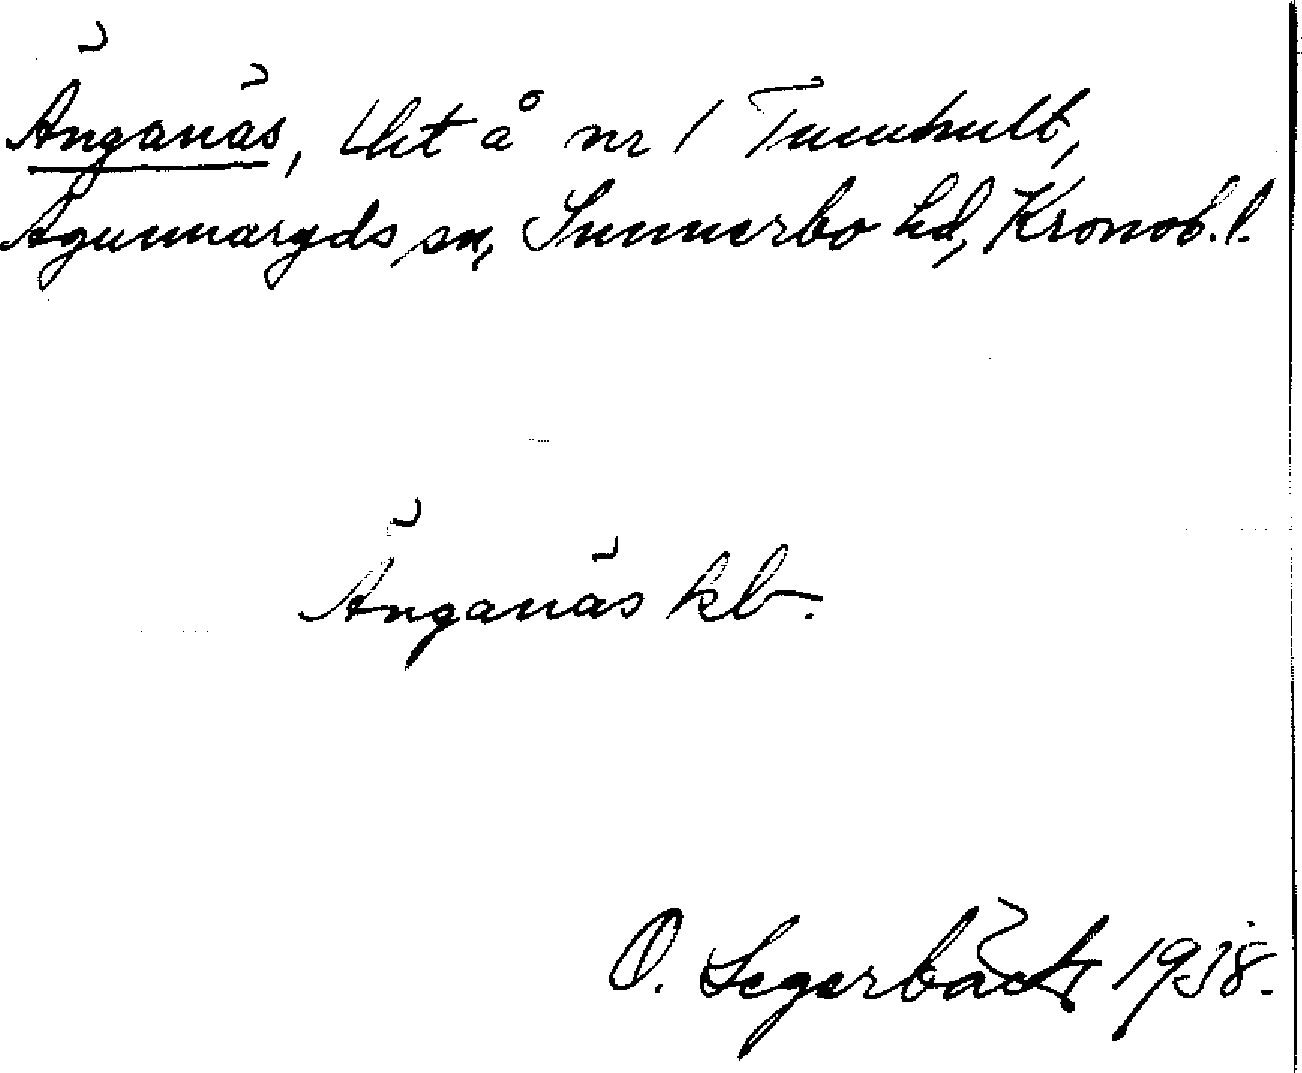 Änganäs, Uht å nr 1 Tunnhult,
Agunnaryds sn, Sunnerbo hd, Kronob. l.
Änganäs kb.
O. Segerbäck 1938.